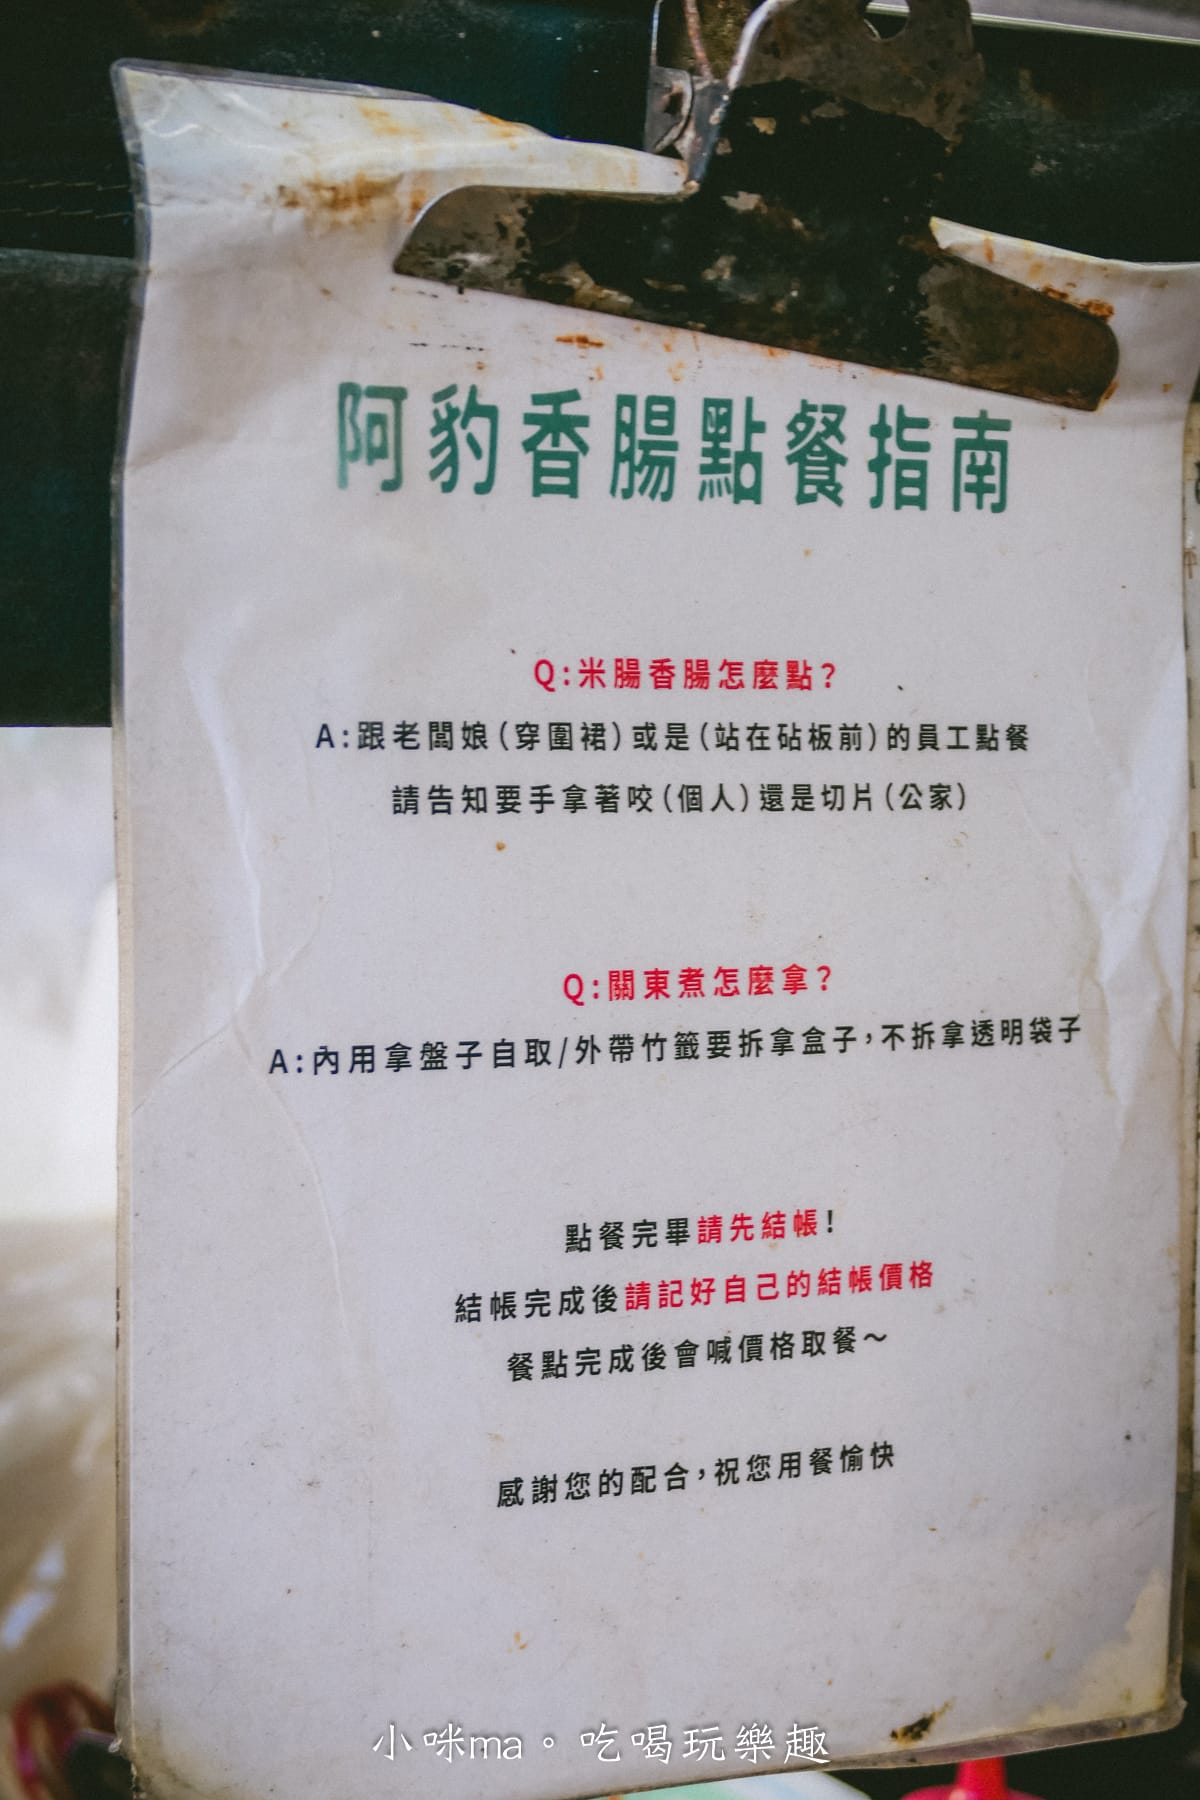 阿豹香腸點餐指南
Q:米腸香腸怎麼點？
A:跟老闆娘(穿圍裙)或是(站在砧板前)的員工點餐
請告知要手拿著咬(個人)還是切片(公家)
Q:關東煮怎麼拿？
A:內用拿盤子自取/外帶竹籤要拆拿盒子，不拆拿透明袋子
點餐完畢請先結帳！
結帳完成後請記好自己的結帳價格
餐點完成後會喊價格取餐～
感謝您的配合，祝您用餐愉快
小咪ma。吃喝玩樂趣